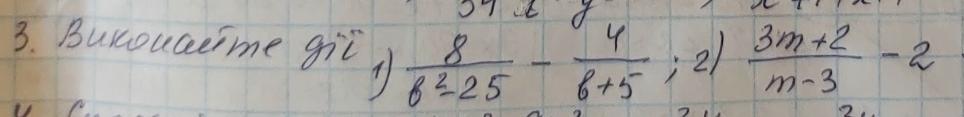 3. Виконайте дії 1) 8/(b²-25) - 4/(b+5); 2) (3m+2)/(m-3) - 2